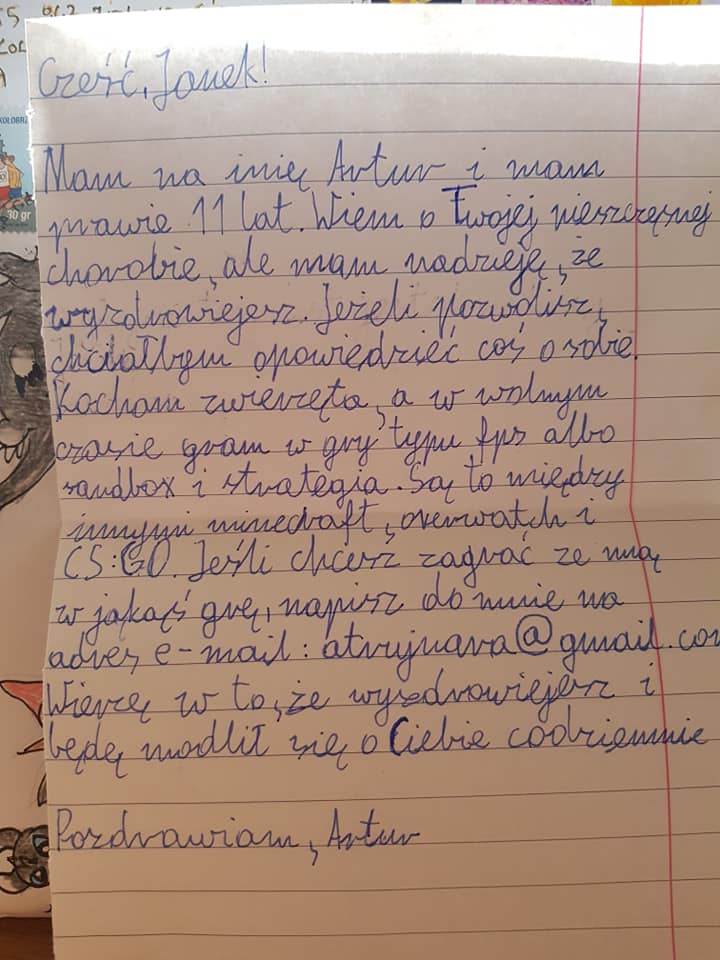 Cześć, Janek!
Mam na imię Artur i mam
prawie 11 lat. Wiem o Twojej nieszczęsnej
chorobie, ale mam nadzieję, że
wyzdrowiejesz. Jeżeli pozwolisz,
chciałbym opowiedzieć coś o sobie.
Kocham zwierzęta, a w wolnym
czasie gram w gry typu fps albo
sandbox i strategia. Są to między
innymi minecraft, overwatch i
CS:GO. Jeśli chcesz zagrać ze mną
w jakąś grę, napisz do mnie na
adres e-mail: atrujnara@gmail.com
Wierzę w to, że wyzdrowiejesz i
będę modlił się o Ciebie codziennie
Pozdrawiam, Artur
KOŁOBRZ
30 gr